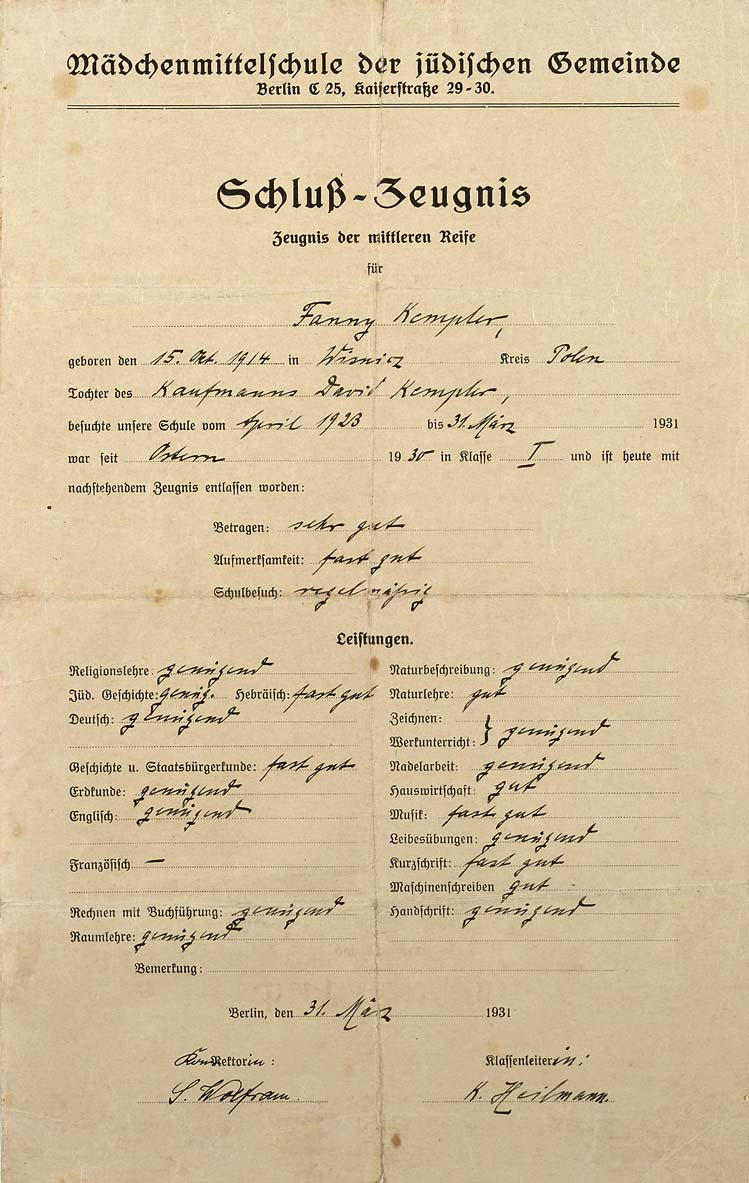 Mädchenmittelschule der jüdischen Gemeinde
Berlin C 25, Kaiserstraße 29-30.
Schluß-Zeugnis
Zeugnis der mittleren Reife
für
Fanny Kempler,
geboren den 15. Okt. 1914 in Wisnicz Kreis Polen
Tochter des Kaufmanns David Kempler,
besuchte unsere Schule vom April 1923 bis 31. März 1931
war seit Ostern 1930 in Klasse I und ist heute mit
nachstehendem Zeugnis entlassen worden:
Betragen: sehr gut
Aufmerksamkeit: fast gut
Schulbesuch: regelmäßig
Leistungen.
Religionslehre: genügend
Jüd. Geschichte: genüg. Hebräisch: fast gut
Deutsch: genügend
Geschichte u. Staatsbürgerkunde: fast gut
Erdkunde: genügend
Englisch: genügend
Französisch: —
Rechnen mit Buchführung: genügend
Raumlehre: genügend
Naturbeschreibung: genügend
Naturlehre: gut
Zeichnen:
Werkunterricht: } genügend
Nadelarbeit: genügend
Hauswirtschaft: gut
Musik: fast gut
Leibesübungen: genügend
Kurzschrift: fast gut
Maschinenschreiben gut
Handschrift: genügend
Bemerkung:
Berlin, den 31. März 1931
Rektorin:
S. Wolfram.
Klassenleiterin:
K. Heilmann.